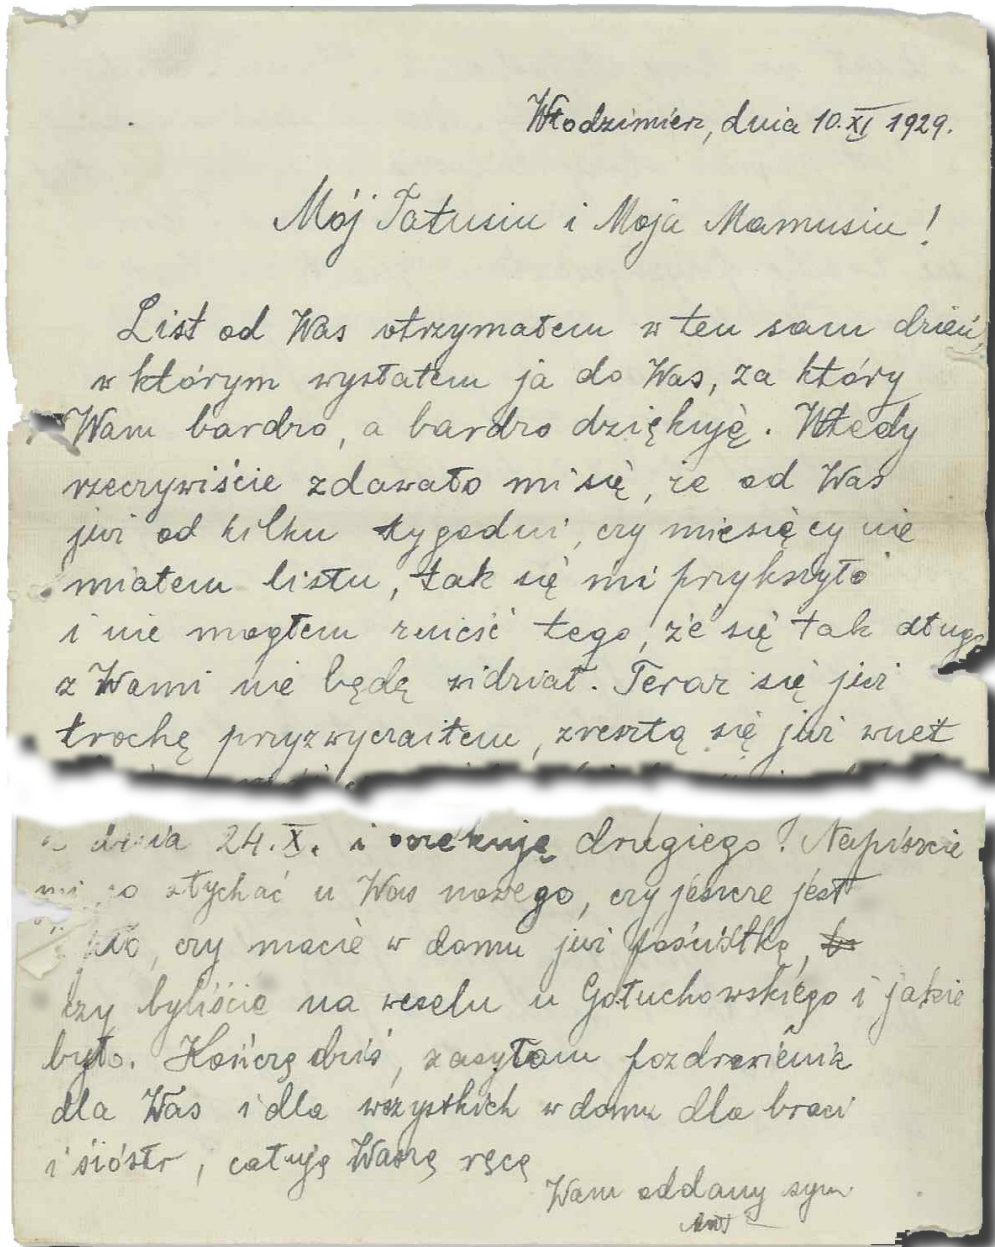 Włodzimierz, dnia 10.XI 1929.
Mój Tatusiu i Moja Mamusiu!
List od Was otrzymałem w ten sam dzień,
w którym wysłałem ja do Was, za który
Wam bardzo, a bardzo dziękuję. Wtedy
rzeczywiście zdawało mi się, że od Was
już od kilku tygodni, czy miesięcy nie
miałem listu, tak się mi przykrzyło
i nie mogłem znieść tego, że się tak długo
z Wami nie będę widział. Teraz się już
trochę przyzwyczaiłem, zresztą się już wnet
dnia 24.X. i oczekuję drugiego! Napiszcie
mi co słychać u Was nowego, czy jeszcze jest
czy macie w domu już pośwółkę,
czy byliście na weselu u Gołuchowskiego i jakie
było. Kończę dziś, zasyłam pozdrowienia
dla Was i dla wszystkich w domu dla braci
i sióstr, całuję Waszą ręcę
Wam oddany syn